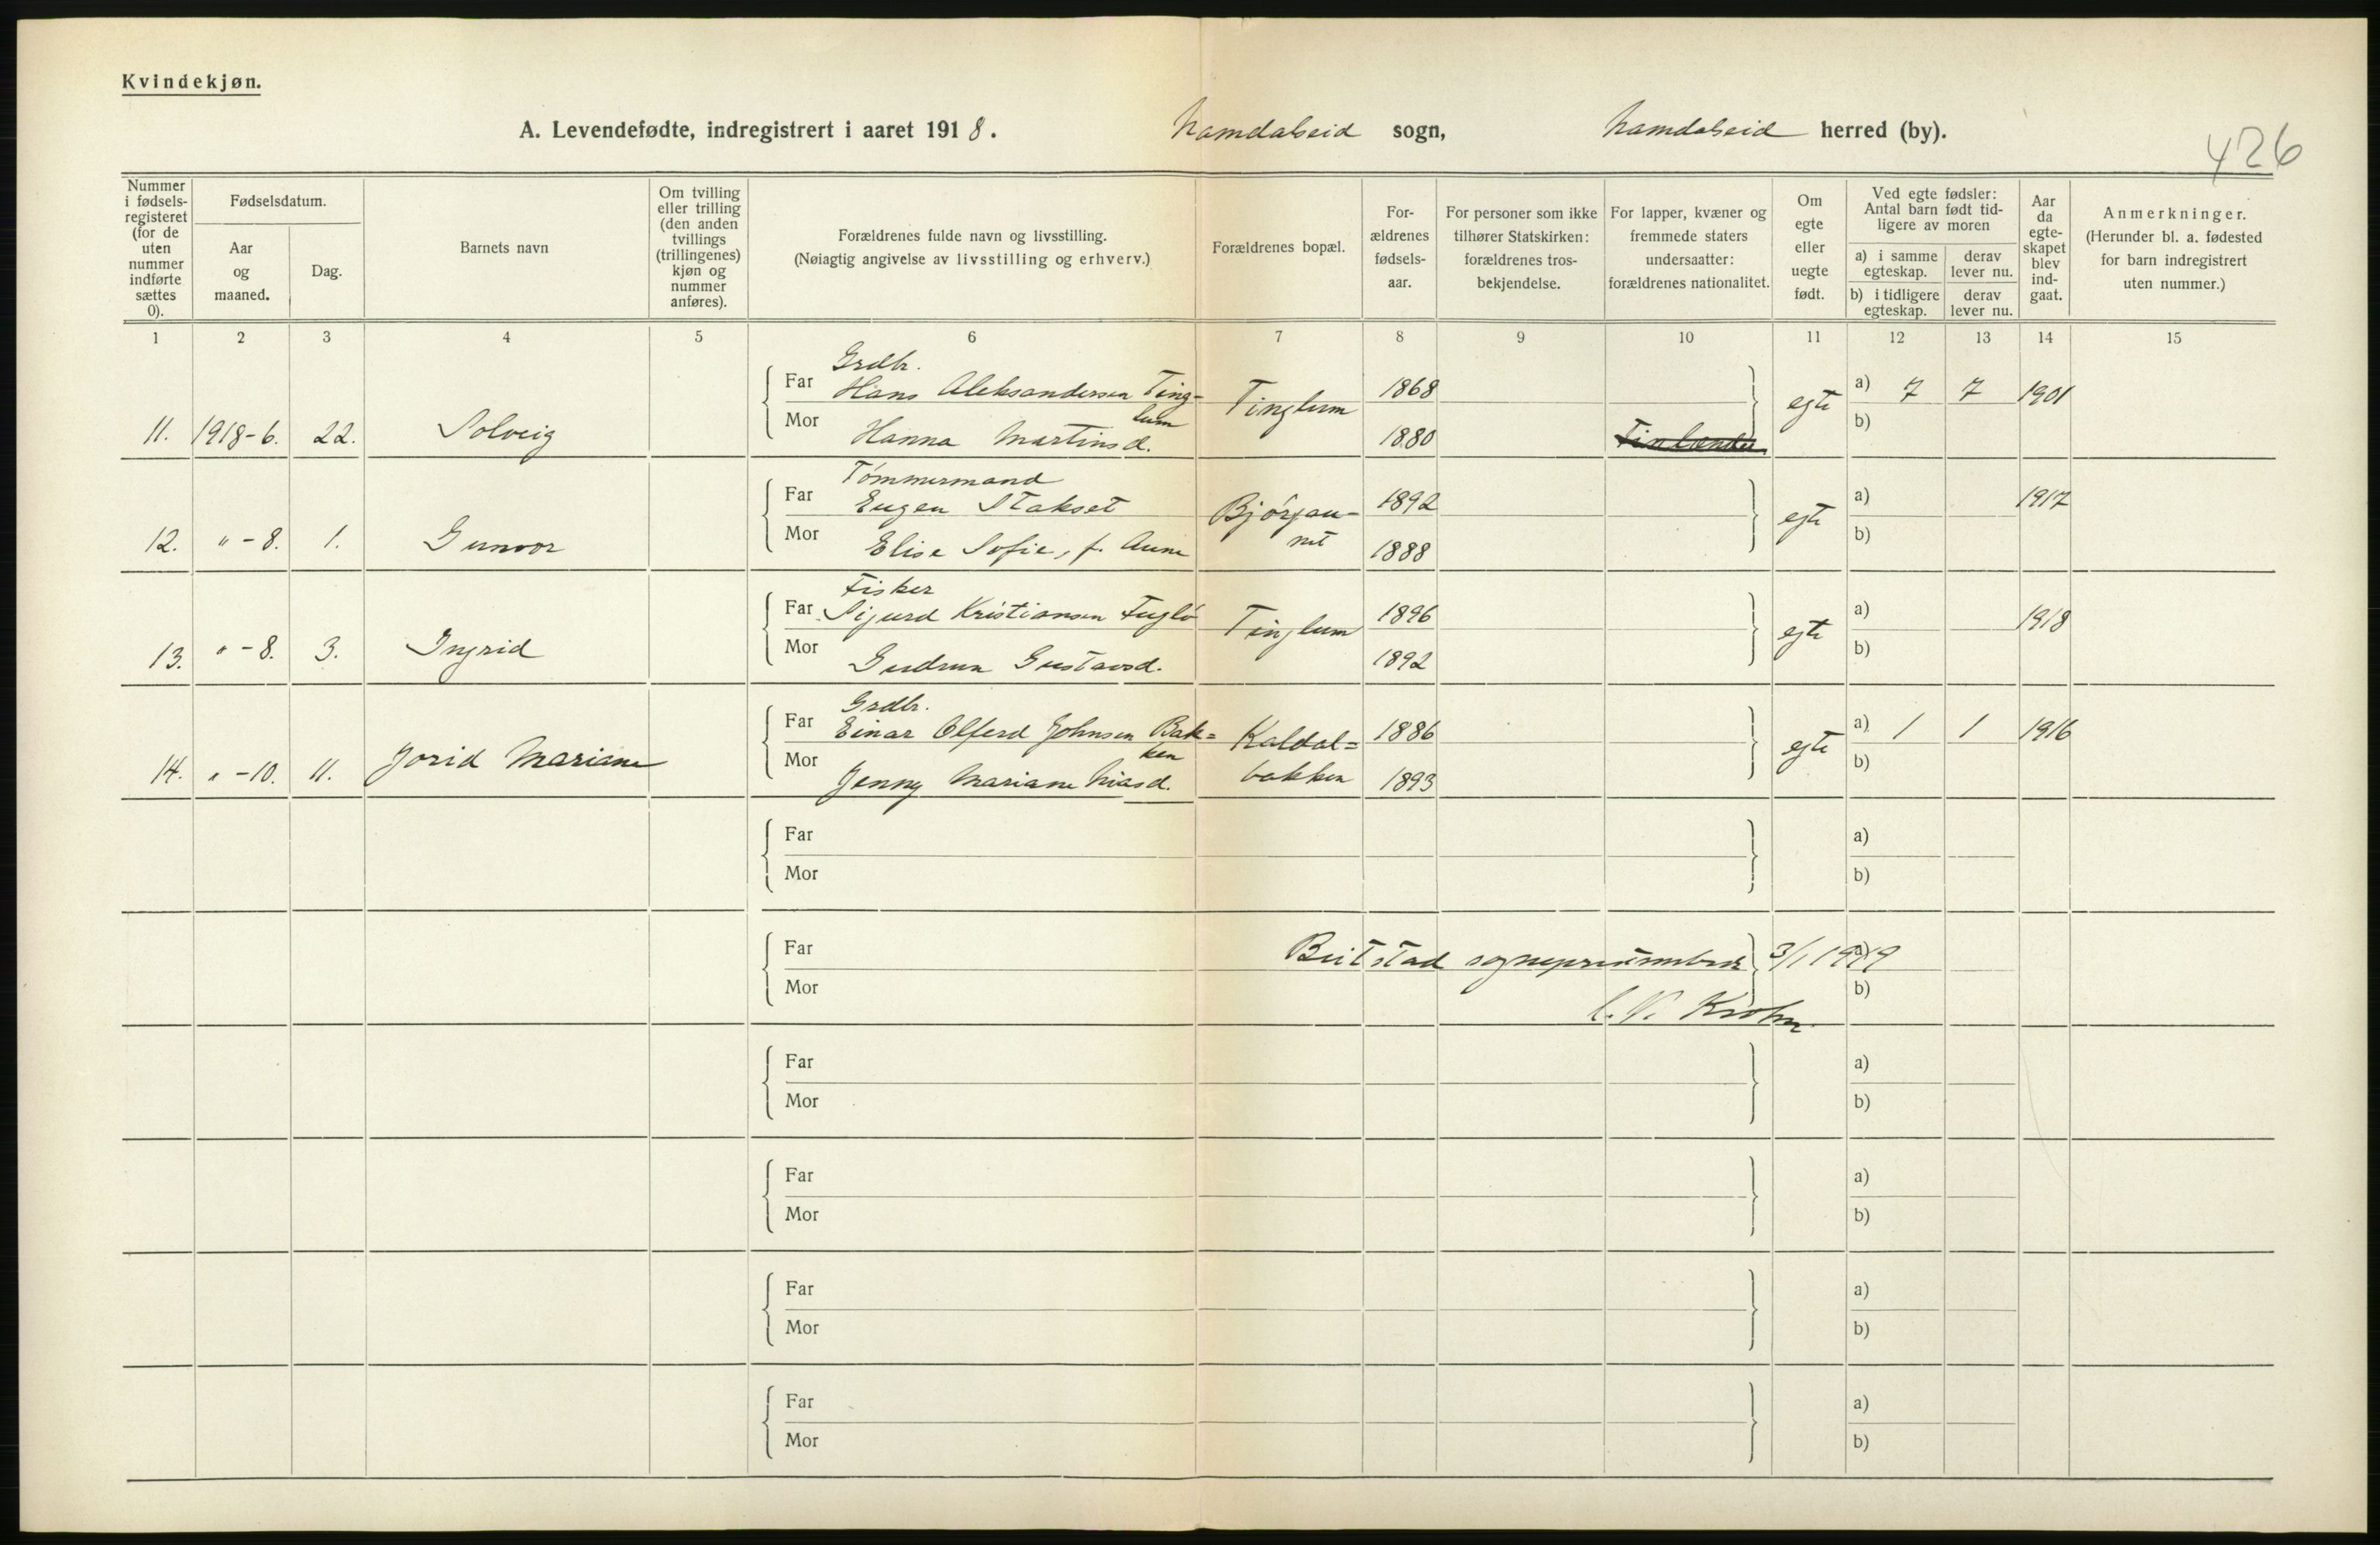 Kvindekjøn.
A. Levendefødte, indregistrert i aaret 1918. Namdalseid sogn, Namdalseid herred (by).
426
Nummer i fødsels-registeret (for de uten nummer indførte sættes 0).
Fødselsdatum.
Aar og maaned.
Dag.
Barnets navn
Om tvilling eller trilling (den anden tvillings (trillingenes) kjøn og nummer anføres).
Forældrenes fulde navn og livsstilling.
(Nøiagtig angivelse av livsstilling og erhverv.)
Forældrenes bopæl.
For-ældrenes fødsels-aar.
For personer som ikke tilhører Statskirken: forældrenes tros-bekjendelse.
For lapper, kvæner og fremmede staters undersaatter: forældrenes nationalitet.
Om egte eller uegte født.
Ved egte fødsler: Antal barn født tid-ligere av moren
a) i samme egteskap.
derav lever nu.
b) i tidligere egteskap.
derav lever nu.
Aar da egte-skapet blev ind-gaat.
Anmerkninger.
(Herunder bl. a. fødested for barn indregistrert uten nummer.)
1 2 3 4 5 6 7 8 9 10 11 12 13 14 15
Grdbr.
Far Hans Aleksandersen Ting- Tinglum 1868 egte a) 7 7 1901
lum
11. 1918-6. 22. Solveig Mor Hanna Martinsd. 1880 b)
Tømmermand
Far Eugen Stakset Bjørgan- 1892 egte a) 1917
12. " - 8. 1. Gunvor Mor Elise Sofie, f. Aune net 1888 b)
Fisker
Far Sigurd Kristiansen Fuglø Tinglum 1896 egte a) 1918
13. " - 8. 3. Ingrid Mor Gudrun Gustavsd. 1892 b)
Grdbr.
Far Einar Olferd Johnsen Bak= Kaldal= 1886 egte a) 1 1 1916
ken
14. " -10. 11. Jorid Mariane Mor Jenny Mariane Niasd. bakken 1893 b)
Far a)
Mor b)
Far Beitstad 3/1 1919 a)
Mor b)
C. V. Krohn
Far a)
Mor b)
Far a)
Mor b)
Far a)
Mor b)
Far a)
Mor b)